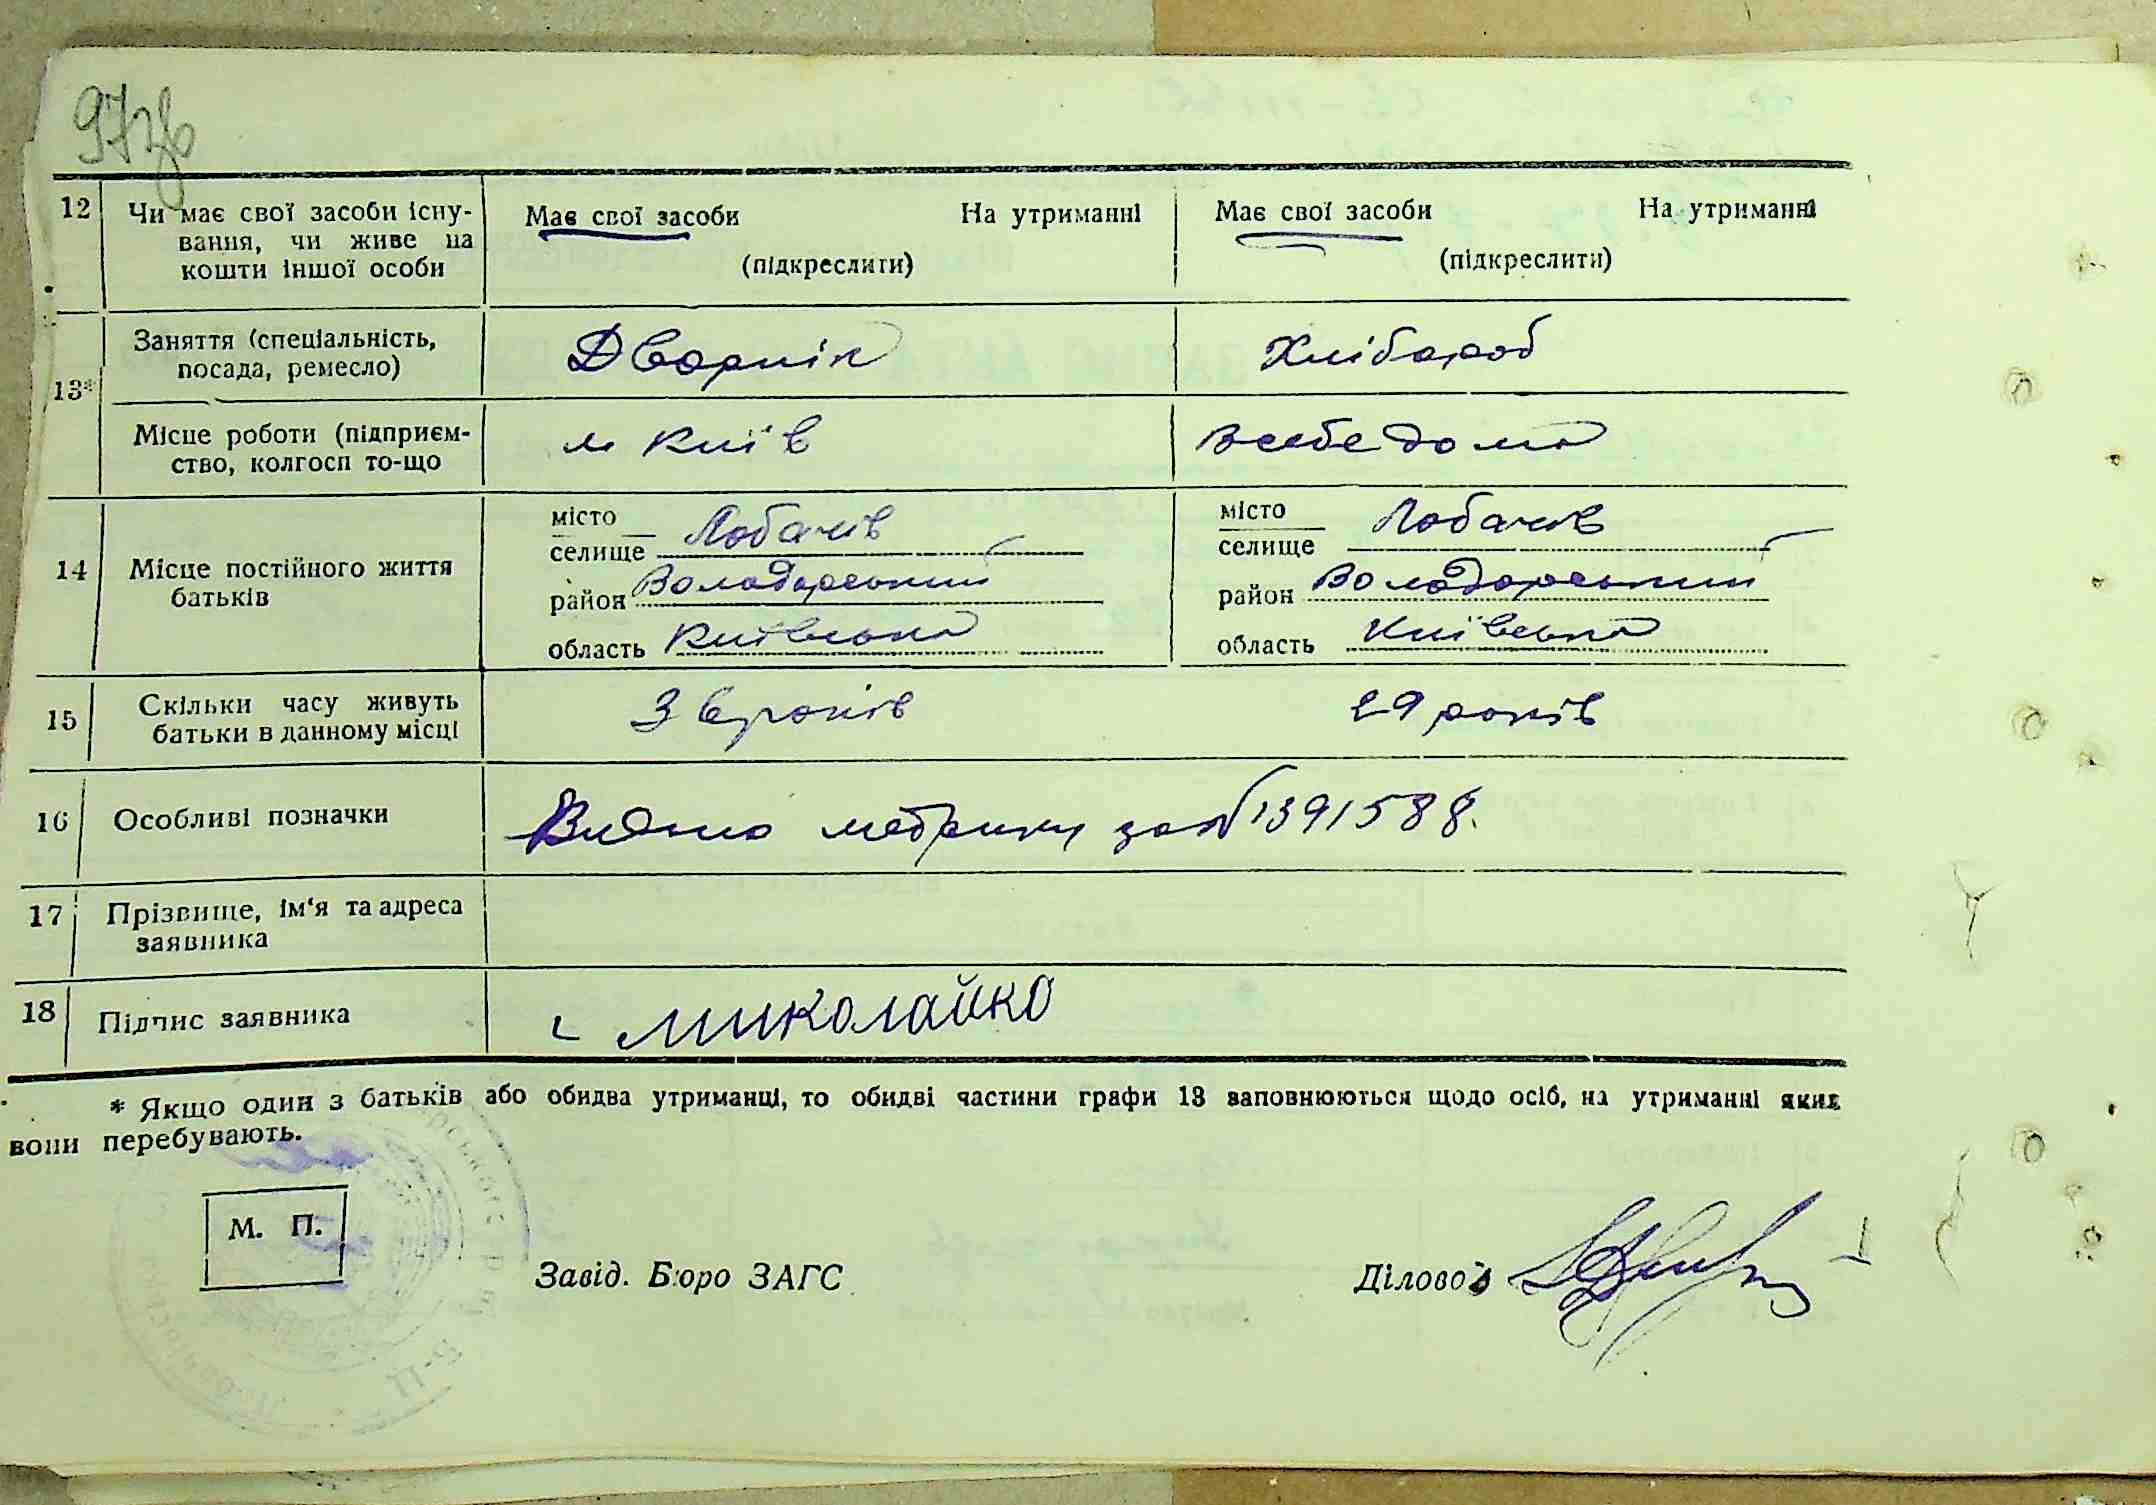 97зв
12 Чи має свої засоби існу- Має свої засоби На утриманні Має свої засоби На утриманні
вання, чи живе на
кошти іншої особи (підкреслити) (підкреслити)
Заняття (спеціальність, Дворнік Хлібароб
посада, ремесло)
13*
Місце роботи (підприєм- м Київ всебе дома
ство, колгосп то-що
місто Лобачів місто Лобачів
селище селище
14 Місце постійного життя район Володарський район Володарський
батьків
область Київська область Київська
15 Скільки часу живуть 36 років 29 років
батьки в данному місці
16 Особливі позначки Видано метрику за № 1391588.
17 Прізвище, ім'я та адреса
заявника
18 Підпис заявника Миколайко
* Якщо один з батьків або обидва утриманці, то обидві частини графи 13 заповнюються щодо осіб, на утриманні яких
вони перебувають.
М. П.
Завід. Бюро ЗАГС Діловод